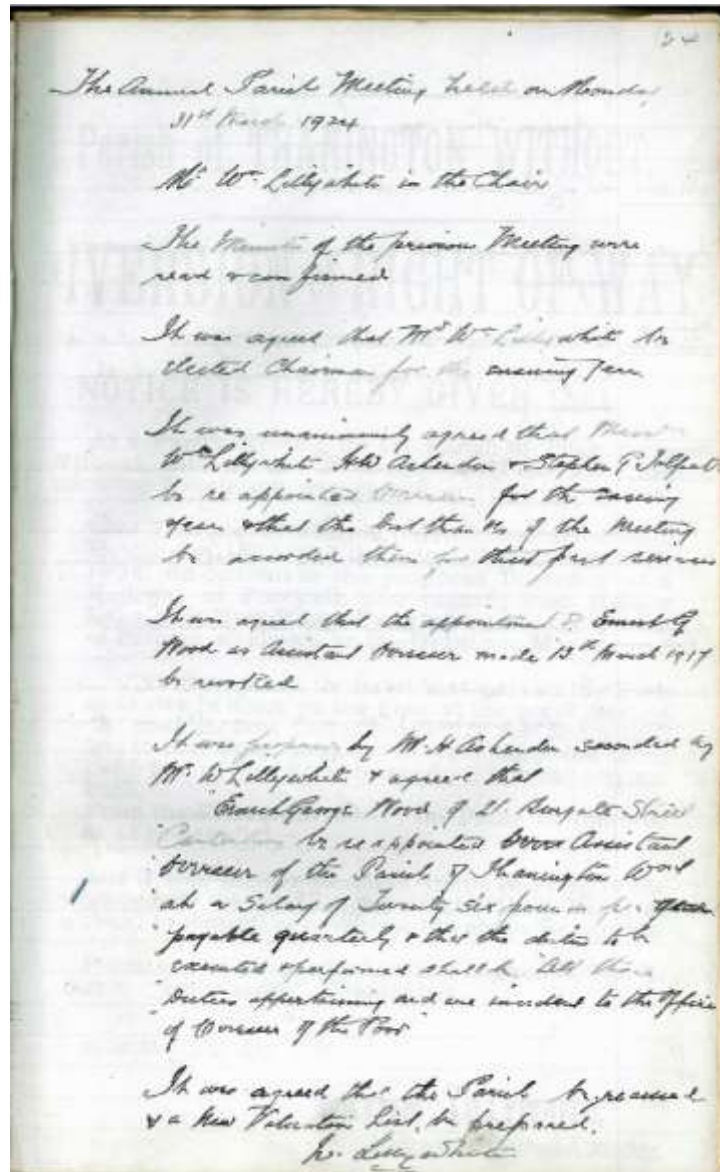 24
The Annual Parish Meeting held on Monday
31st March 1924
Mr Wm Lillywhite in the Chair
The Minutes of the previous Meeting were
read & confirmed
It was agreed that Mr Wm Lillywhite be
elected Chairman for the ensuing year
It was unanimously agreed that Messrs
Wm Lillywhite HW Ashenden & Stephen
be re appointed Overseers for the ensuing
year & that the best thanks of the Meeting
be accorded them for their past services
It was agreed that the appointment of Ernest G
Wood as Assistant Overseer made 13th March 1917
be revoked
It was proposed by Mr H Ashenden seconded by
Mr W Lillywhite & agreed that
"Ernest George Wood of 21. Burgate Street
"Canterbury be re appointed Assistant
"Overseer of the Parish of Thanington
"at a Salary of Twenty six pounds per
"payable quarterly & that the duties to be
"executed & performed shall be All those
"Duties appertaining and are incident to the Office
"of Overseer of the Poor"
It was agreed that the Parish be
& a New Valuation List, be prepared.
W. Lillywhite
Parish of THANINGTON WITHOUT
DIVERSION RIGHT OF WAY
NOTICE IS HEREBY GIVEN